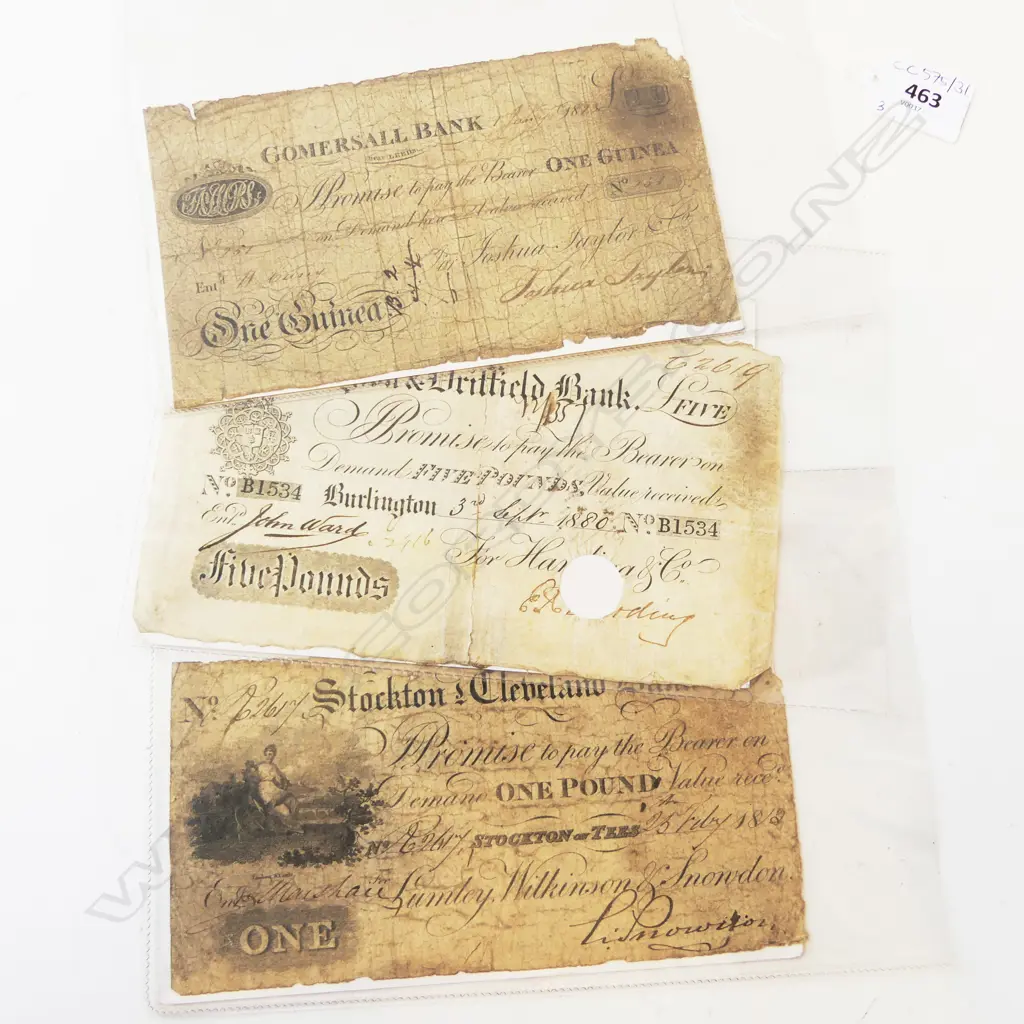 CC576/31
463
3
GOMERSALL BANK
Near LEEDS
I Promise to pay the Bearer ONE GUINEA
on Demand here Value received
No 151
Entd
For Joshua Taylor & Co
One Guinea
Joshua Taylor
& Driffield Bank.
£FIVE
C2619
I Promise to pay the Bearer on
Demand FIVE POUNDS, Value received
No B1534
Burlington 3rd Septr 1880. No B1534
Entd John Ward
For Harding & Co
Five Pounds
No C2617
Stockton & Cleveland Bank
I Promise to pay the Bearer on
Demand ONE POUND Value recd
No C2617 STOCKTON on TEES 25th Feby 1813
Entd
For Lumley, Wilkinson & Snowdon.
ONE